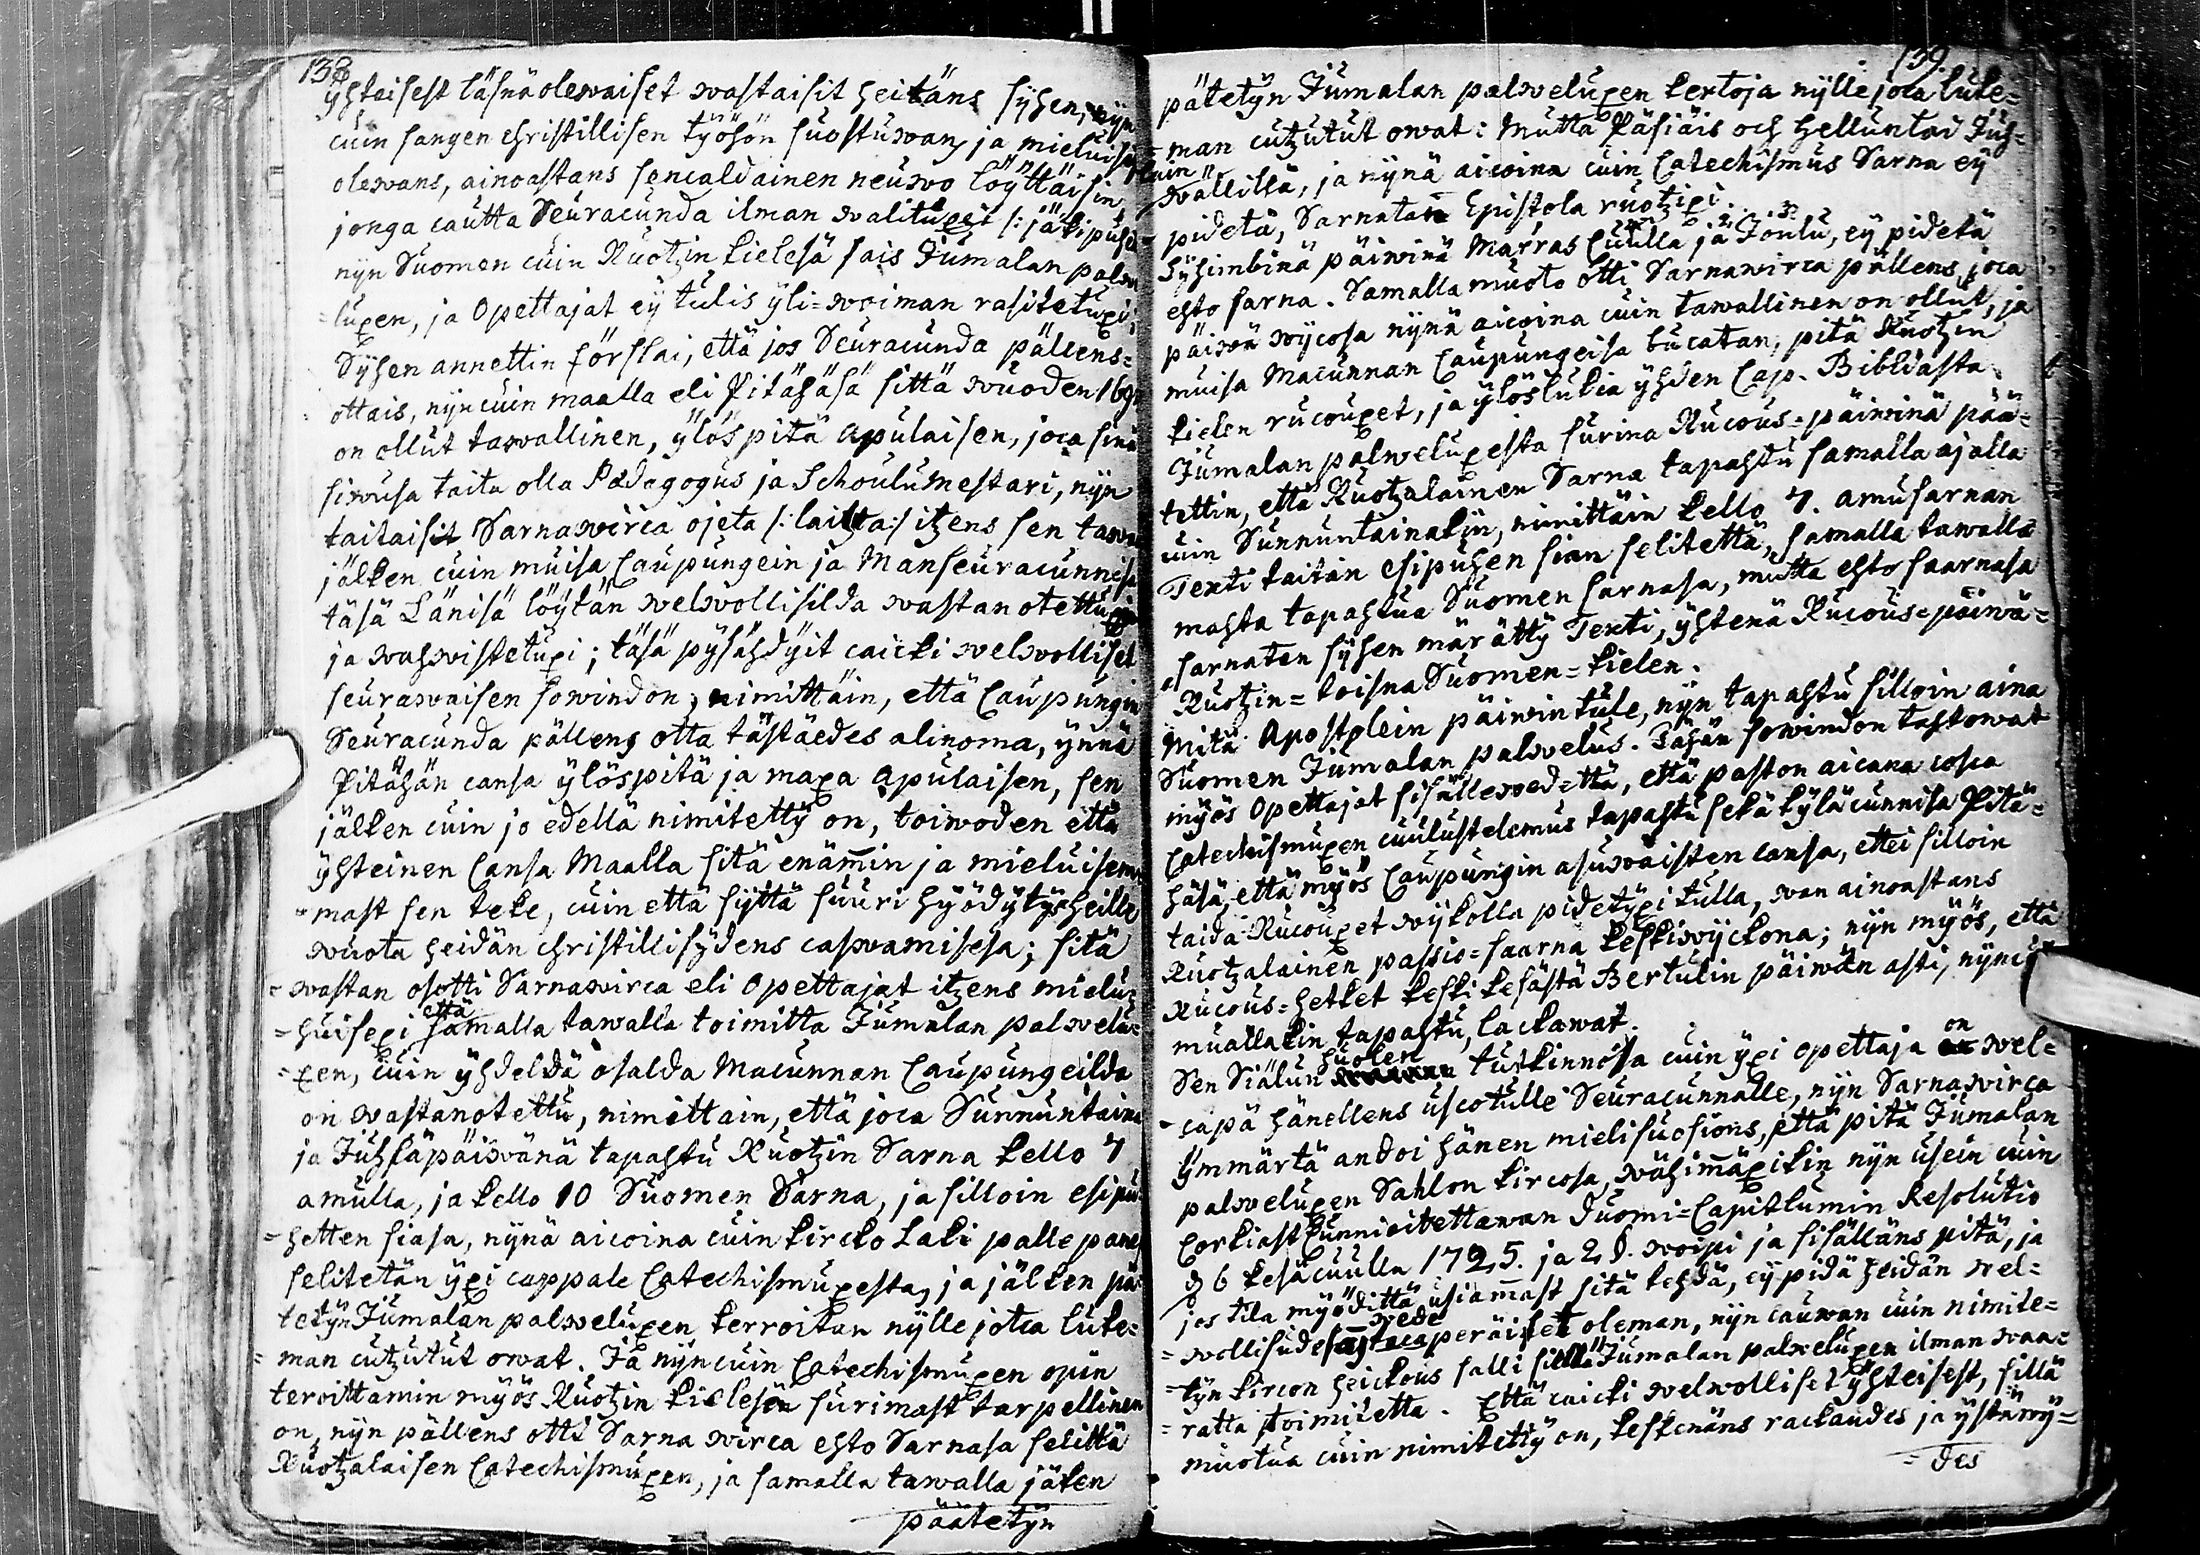 138
yhteisest läsnäolewaiset wastaisit heitäns syhen, nijn
cuin sangen christillisen työhön suostuwan ja mieluisen
olewans, ainoastans sencaldainen neuwo löyttäisin
jonga cautta Seuracunda ilman walituxeit /: jälki puhe
nyn Suomen cuin Ruotzin kielesä sais Jumalan palwe
=luxen, ja Opettajat ey tulis yli=woiman rasitetuxi;
Syhen annettin förslai, että jos Seuracunda pällens=
ottais, nyn cuin maalla eli Pitähäsä sittä wuoden 169
on ollut tawallinen, ylöspitä Apulaisen, joca sinä
siwusa taita olla Pædagogus ja Schoulumestari, nyn
taitaisit Sarnawirca ojeta /: laitta :/ itzens sen tawan
jälken cuin muisa Caupungein ja Manseuracunnisa
täsä Länisä löytän welwollisilda wastanotettuxi
ja wahwistetuxi; täsä pysähdyit caicki welwolliset
seurawaisen sowindon; nimittäin, että Caupungin
Seuracunda pällens otta tästäedes alinoma, ynnä
Pitähän cansa ylöspitä ja maxa Apulaisen, sen
jälken cuin jo edellä nimitetty on, toiwoden että
yhteinen Cansa Maalla sitä enämin ja mieluisem
=mast sen teke, cuin että sijttä suuri hyödytys heille
wuota heidän christillisydens caswamisesa; sitä
=wastan osotti Sarnawirca eli Opettajat itzens mielu=
=huisexi että samalla tawalla toimitta Jumalan palwelu=
=xen, cuin yhdeldä osalda Macunnan Caupungeilda
on wastanotettu, nimittain, että joca Sunnuntaina
ja Juhlapäiwänä tapahtu Ruotzin Sarna kello 7
amulla, ja kello 10 Suomen Sarna, ja silloin esipu
=hetten siasa, nynä aicoina cuin kircko Laki palle pane
selitetän yxi cappale Catechismuxesta, ja jälken pä
tetyn Jumalan palweluxen kerroitan nylle jotca luke=
=man cutzutut owat. Ja nyn cuin Catechismuxen opin
teroittamin myös Ruotzin kielesän surimast tarpellinen
on, nyn pällens otti Sarna wirca ehto Sarnasa selittä
Ruotzalaisen Catechismuxen, ja samalla tawalla jälken
päätetyn
139.
pätetyn Jumalan palweluxen kertoja nylle joca luke=
=man cutzutut owat: Mutta Päsiäis och Helluntai Juh=
wällillä, ja nynä aicoina cuin Catechismus Sarna ey
pidetä, Sarnatan Epistola ruotzixi.
Lyhimbinä päiwinä Marras Cuulla ja Joulu, ey pidetä
ehto sarna. Samalla muoto otti Sarnawirca pällens, joca
päiwä wijcosa nynä aicoina cuin tawallinen on ollut, ja
muisa Macunnan Caupungeisa bucatan, pitä Ruotzin
kielen rucouxet, ja ylöslukia yhden Cap. Bibliasta.
Jumalan palweluxesta surina Rucous=päiwinä pää=
tettin, että Ruotzalainen Sarna tapahtu samalla ajalla
cuin Sunnuntainakin, nimittäin kello 7. amusarnan
Texti taitan esipuhen sian selitettä, samalla tawalla
mahta tapahtua Suomen sarnasa, mutta ehto saarnasa
sarnaten syhen märätty Texti, yhtenä Rucous=päiwä=
Ruotzin=toisna Suomen=kielen.
Mitä Apostolein päiwin tule, nyn tapahtu silloin aina
Suomen Jumalan palwelus. Tähän sowindon tahtowat
myös Opettajat sisällewedettä, että paston aicana cosca
Catechismuxen cuulustelemus tapahtu sekä kyläcunnisa Pitä=
häsä, että myös Caupungin asuwaisten cansa, ettei silloin
taida Rucouxet wijkolla pidetyxi tulla, wan ainoastans
Ruotzalainen passio=saarna keskiwijckona; nyn myös, että
Rucous=hetket keski kesästä Bertulin päiwän asti, nyncuin
muallakin tapahtu, lackawat.
Sen Siälun Huolen tutkinnosa cuin yxi opettaja on wel=
=capä hänellens uscotulle Seuracunnalle, nyn Sarnawirca
Ymmärtä andoi hänen mielisuosions, että pitä Jumalan
palweluxen Sahlon kircosa, wähimäxikin nyn usein cuin
Corkiast kunnioitettawan Duomi=Capitlumin Resolutio
d 6 kesäcuulla 1725. ja 2 §. woipi ja sisälläns pitä, ja
jos tila myödittä usiamast sitä tehdä, ey pidä heidän wel=
=wollisudesans wede tacaperäiset oleman, nyn cauwan cuin nimite=
=tyn kircon heickous salli sillä Jumalan palweluxen ilman waa=
=ratta toimitetta. Että caicki welwolliset yhteisest, sillä
muotua cuin nimitetty on, keskenäns rackaudes ja ystäwy=
=des